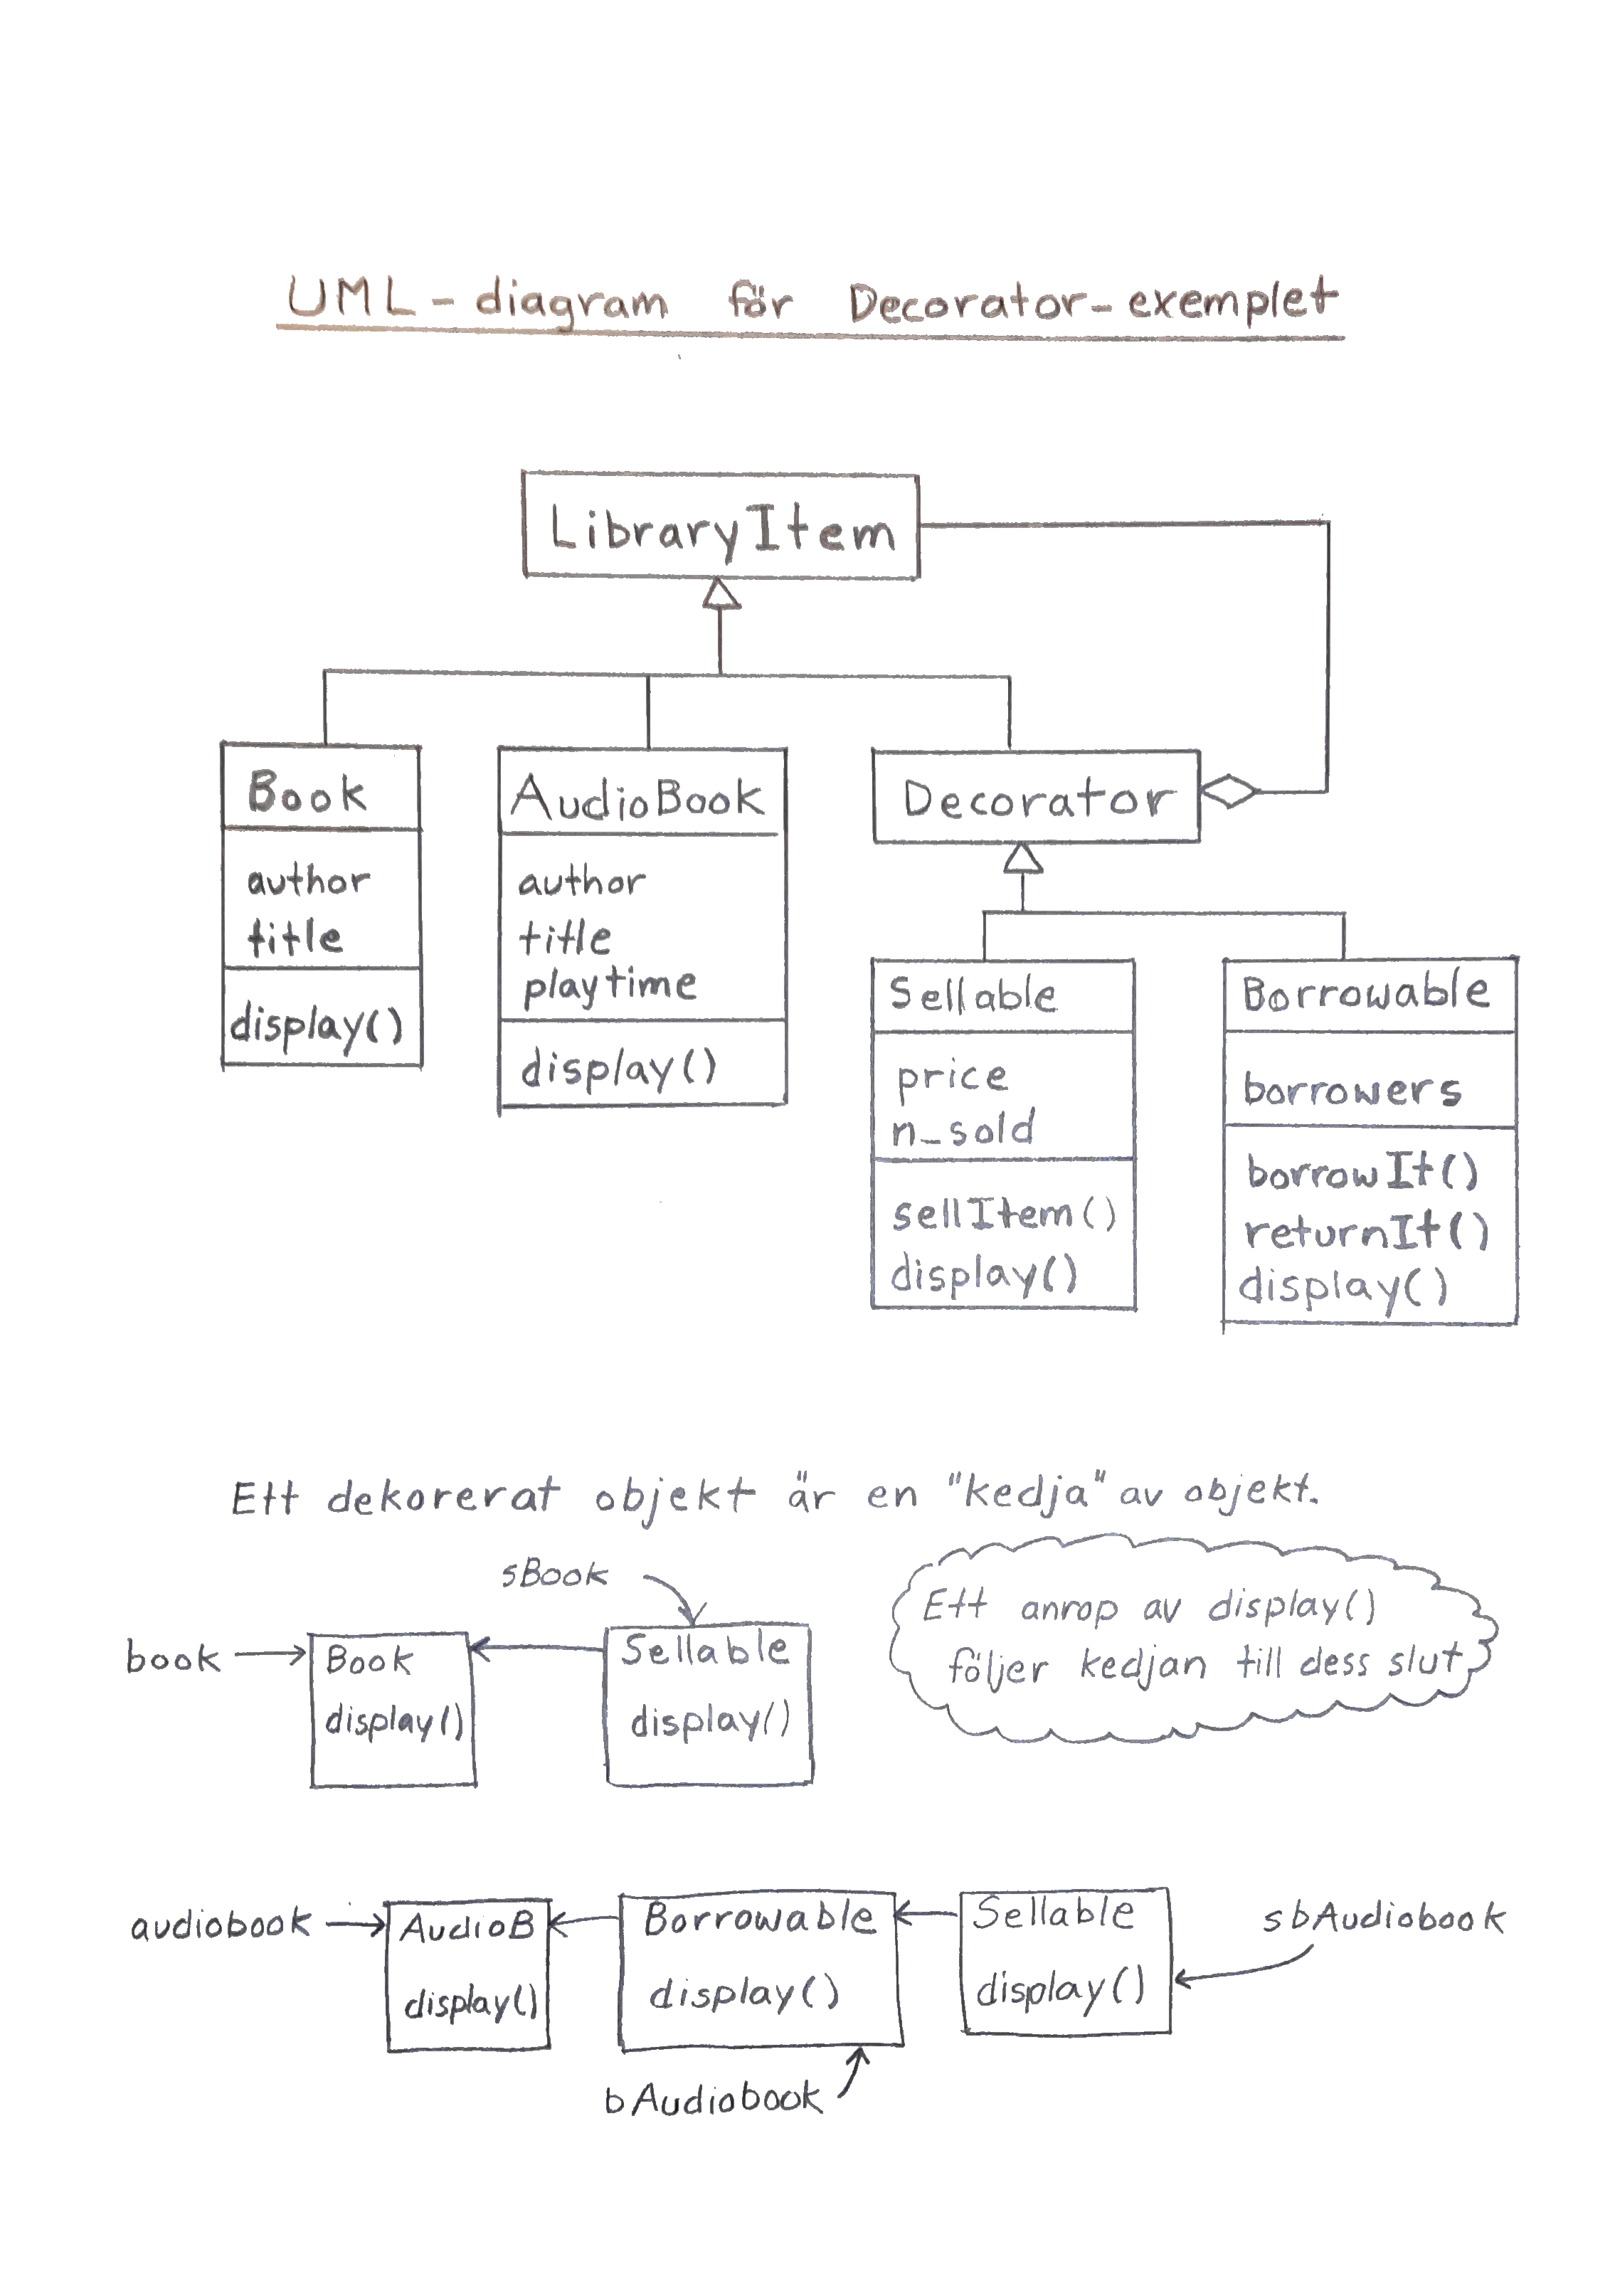 UML-diagram för Decorator-exemplet
LibraryItem
Book
author
title
display()
AudioBook
author
title
playtime
display()
Decorator
Sellable
price
n_sold
sellItem()
display()
Borrowable
borrowers
borrowIt()
returnIt()
display()
Ett dekorerat objekt är en "kedja" av objekt.
sBook
book
Book
display()
Sellable
display()
Ett anrop av display()
följer kedjan till dess slut
audiobook
AudioB
display()
Borrowable
display()
Sellable
display()
sbAudiobook
bAudiobook